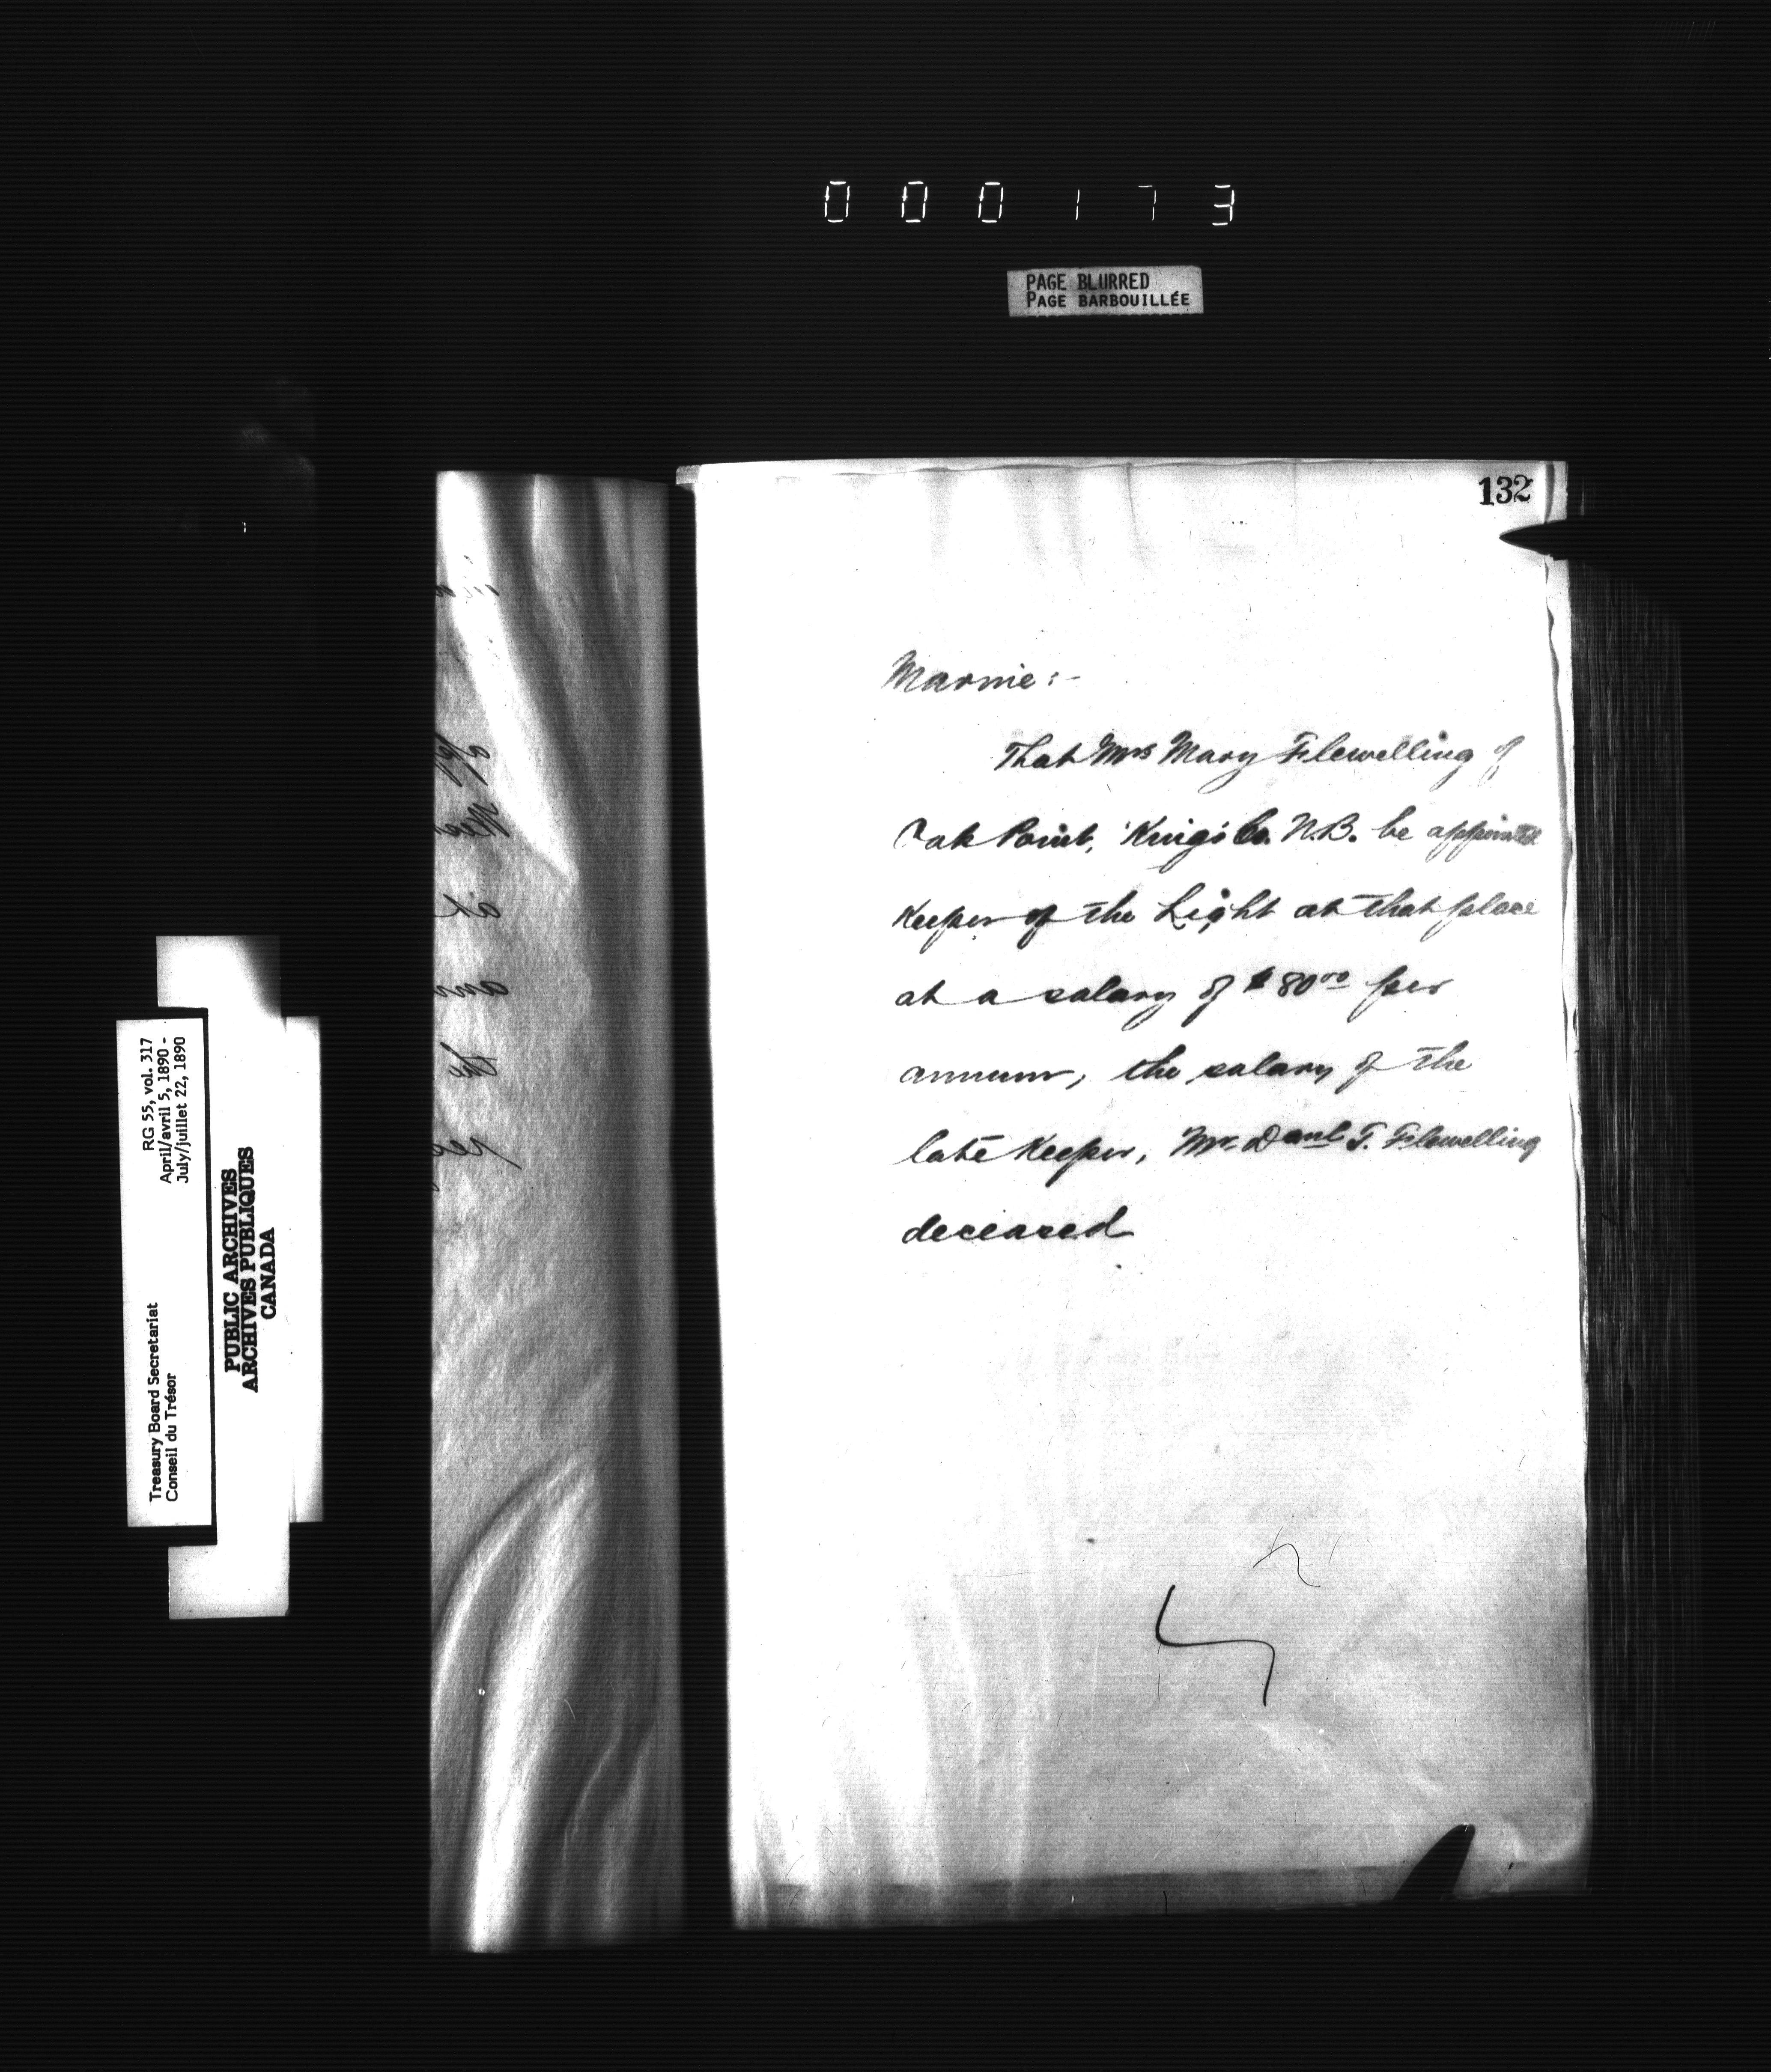 000173
PAGE BLURRED
PAGE BARBOUILLÉE
132
Marine:-
That Mrs Mary Flewelling of
Oak Point, King's Co. N.B. be appointed
Keeper of the Light at that place
at a salary of $80.00 per
annum, the salary of the
late Keeper, Mr. Danl T. Flewelling
deceased
RG 55, vol. 317
April/avril 5, 1890 -
July/juillet 22, 1890
Treasury Board Secretariat
Conseil du Trésor
PUBLIC ARCHIVES
ARCHIVES PUBLIQUES
CANADA